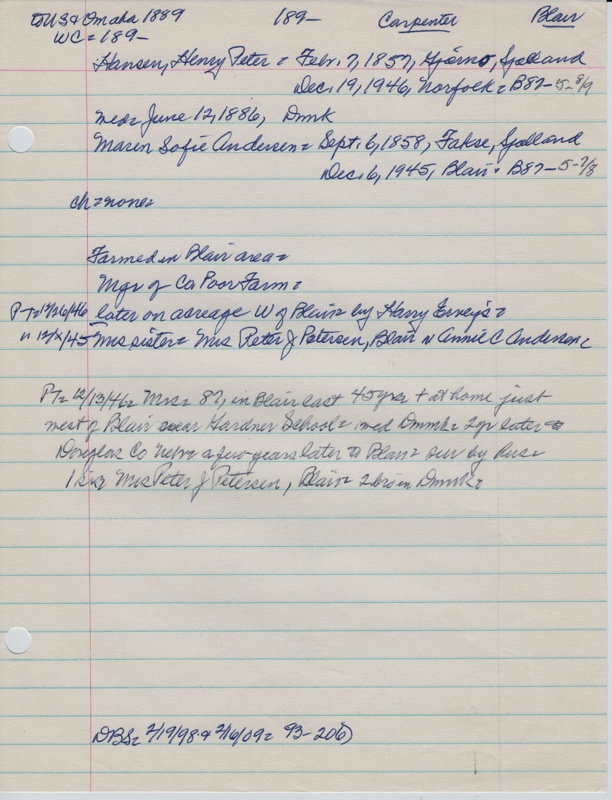 to US & Omaha 1889 189- Carpenter Blair
WC = 189-
Hansen, Henry Peter = Febr. 7, 1857, Sjælland
Dec. 19, 1946, Norfolk = B82- 5-8/9
med = June 12, 1886, Dmk
Maren Sofie Andersen = Sept. 6, 1858, Fakse, Sjælland
Dec. 6, 1945, Blair = B87- 5-7/8
ch = none =
Farmed in Blair area =
Mgr of Co Poor Farm =
PT = 12/26/46 later on acreage W of Blair = by Harry =
" 12/x/45 Mrs sister = Mrs Peter J Petersen, Blair Annie C Andersen =
PT = 12/13/46 = Mrs = 87, in Blair last 45 yrs + at home just
west of Blair near Gardner School = med Dmmk = 2 yr later to
Douglas Co Nebr = a few years later to Blair = sur by hus =
1 sis Mrs Peter J Petersen, Blair = 2 bro in Dmmk =
DBS = 2/19/98 & 2/16/09 = 93-206)